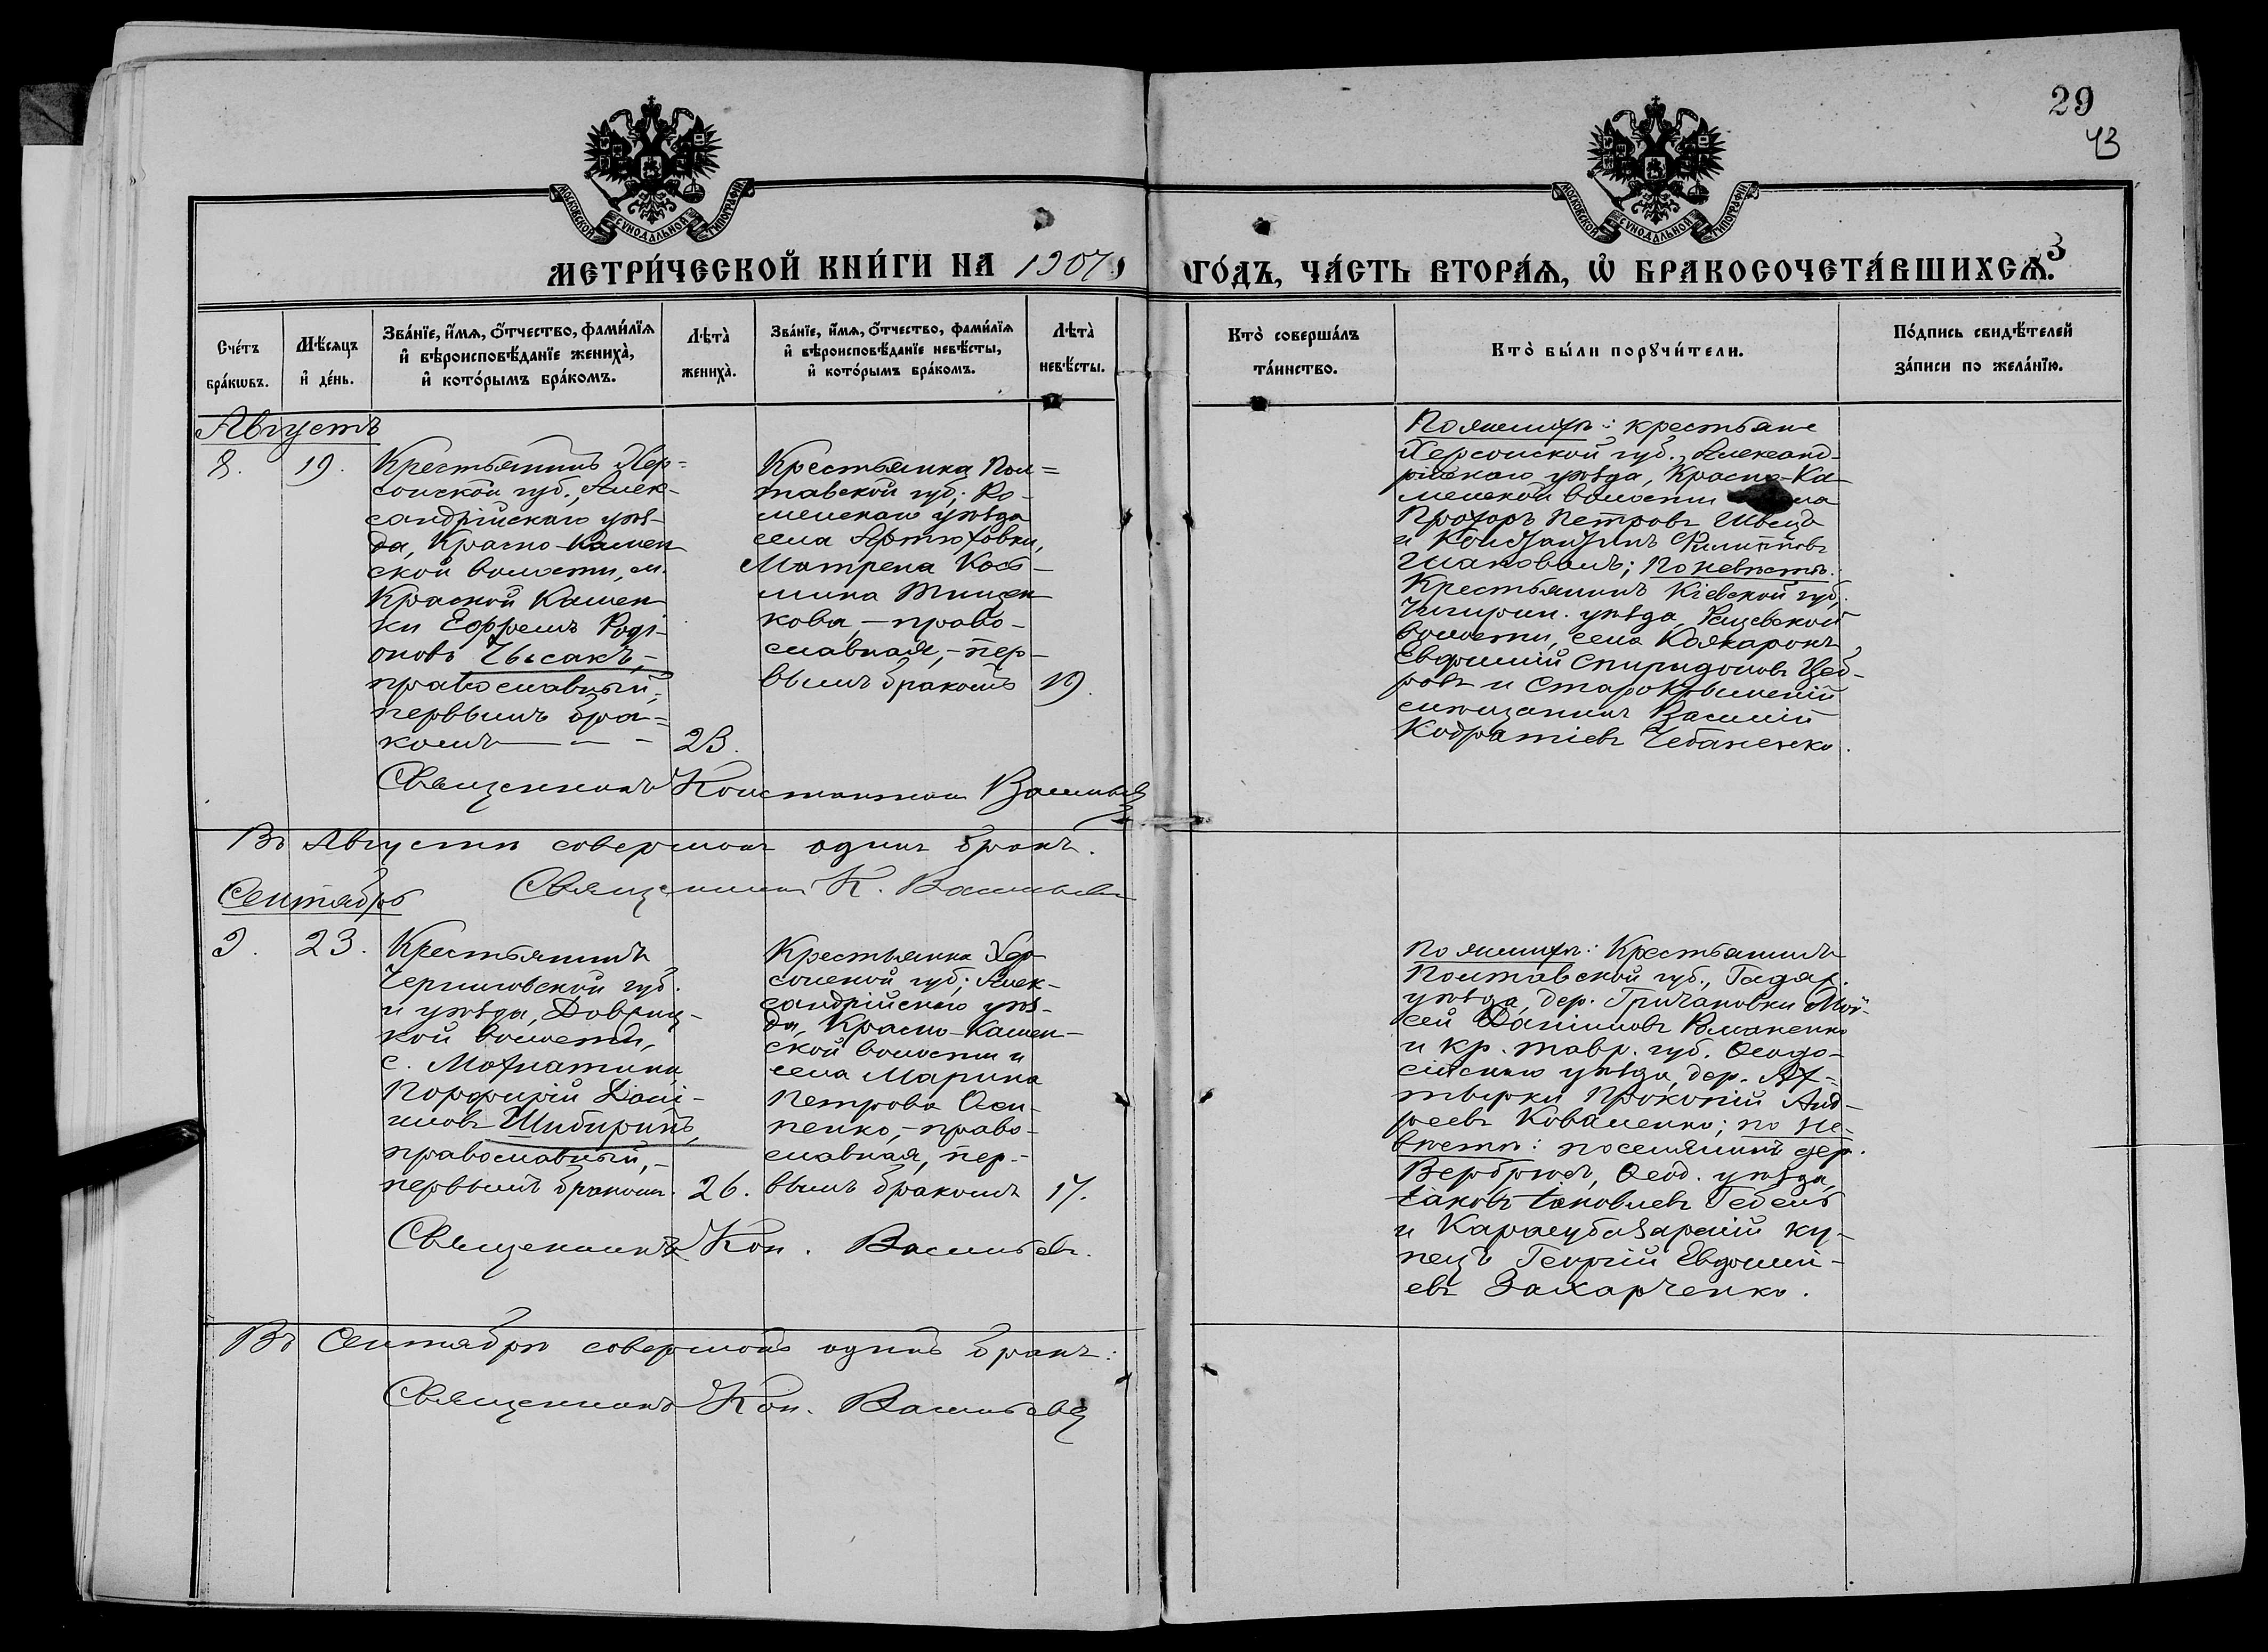 29
43
МОСКОВСКОЙ СУНОДАЛЬНОЙ ТИПОГРАФІИ
МОСКОВСКОЙ СУНОДАЛЬНОЙ ТИПОГРАФІИ
МЕТРИ́ЧЕСКОЙ КНИ́ГИ НА 1907
ГО́ДЪ, ЧА́СТЬ ВТОРА́Ѧ, Ѽ БРАКОСОЧЕТА́ВШИХСѦ.
3
Сче́тъ бра́кѡвъ.
Мѣ́сяцъ и҆ де́нь.
Зва́нїе, и҆́мя, ѻ҆́тчество, фами́лїя
и҆ вѣроисповѣ́данїе жениха̀,
и҆ кото́рымъ бра́комъ.
Лѣта̀ жениха̀.
Зва́нїе, и҆́мя, ѻ҆́тчество, фами́лїя
и҆ вѣроисповѣ́данїе невѣ́сты,
и҆ кото́рымъ бра́комъ.
Лѣта̀ невѣ́сты.
Кто̀ соверша́лъ та́инство.
Кто̀ бы́ли порꙋчи́тели.
По́дпись свидѣ́телей
за́писи по жела́нїю.
Августъ
8.
19.
Крестьянинъ Хер=
сонской губ., Алек-
сандрійскаго уѣз-
да, Красно-Камен
ской волости, м.
Красной Камен
ки Ефремъ Роді-
оновъ Чысакъ,-
православный,
первымъ бра=
комъ — — -
23.
Крестьянка Пол=
тавской губ; Ро-
менскаго уѣзда
села Артюховки,
Матрена Коз-
мина Тищен
кова, - право-
славная, - пер-
вымъ бракомъ
19.
По женихѣ: крестьяне
Херсонской губ., Александ-
рійскаго уѣзда, Красно-Ка-
менской волости
Прохоръ Петровъ Швецъ
и Константинъ Филипповъ
Шаповалъ; По невѣстѣ:
Крестьянинъ Кіевской губ,
Чигирин. уѣзда,
волости, села
Евфимій Спиридоновъ
и Старокрымскій
мѣщанинъ Василій
Кодратіевъ Чебаненко.
Священникъ Константинъ Васильевъ
Въ Августѣ совершонъ одинъ бракъ.
Священникъ К. Васильевъ
Сентябрь
9.
23.
Крестьянинъ
Черниговской губ.
и уѣзда,
кой волости,
с. Мохнатина
Порфирій Дані-
иловъ Шибиринъ,
православный,-
первымъ бракомъ.
26.
Крестьянка Хер-
сонской губ; Алек-
сандрійскаго уѣз-
да, Красно-Камен-
ской волости и
села Марина
Петрова Оси-
пенко, - право-
славная, пер-
вымъ бракомъ
17.
По женихѣ: Крестьянинъ
Полтавской губ., Гадяч.
уѣзда, дер. Гричановки Мой-
сей Даніиловъ Романенко
и кр. тавр. губ. Ѳеодо-
сійскаго уѣзда, дер. Ах-
тырки Прокопій Анд-
реевъ Коваленко; по не-
вѣстѣ: поселянинъ дер.
Ѳеод. уѣзда,
Іаковъ Іаковлевъ Гебель
и Карасубазарскій ку-
пецъ Георгій Евфимі-
евъ Захарченко.
Священникъ Кон. Васильевъ.
Въ Сентябрѣ совершонъ одинъ бракъ:
Священникъ Кон. Васильевъ